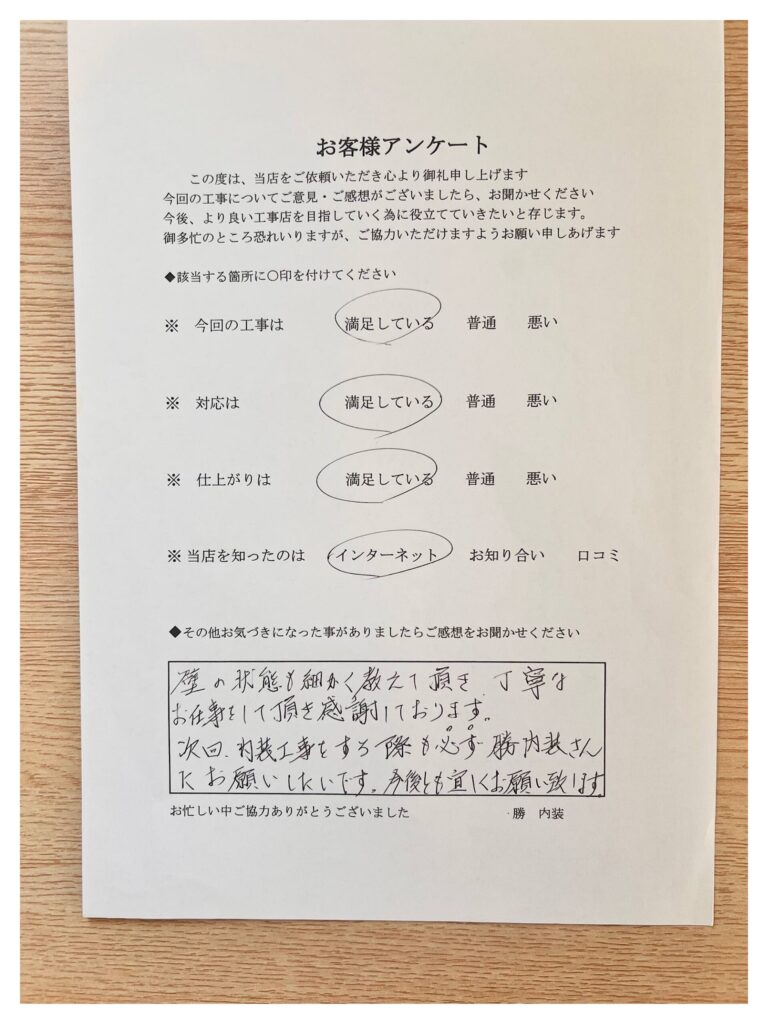 お客様アンケート
この度は、当店をご依頼いただき心より御礼申し上げます
今回の工事についてご意見・ご感想がございましたら、お聞かせください
今後、より良い工事店を目指していく為に役立てていきたいと存じます。
御多忙のところ恐れいりますが、ご協力いただけますようお願い申しあげます
◆該当する箇所に〇印を付けてください
※ 今回の工事は 満足している 普通 悪い
※ 対応は 満足している 普通 悪い
※ 仕上がりは 満足している 普通 悪い
※ 当店を知ったのは インターネット お知り合い 口コミ
◆その他お気づきになった事がありましたらご感想をお聞かせください
壁の状態も細かく教えて頂き、丁寧な
お仕事をして頂き感謝しております。
次回、内装工事をする際も必ず勝内装さん
にお願いしたいです。今後とも宜しくお願い致します。
お忙しい中ご協力ありがとうございました 勝 内装